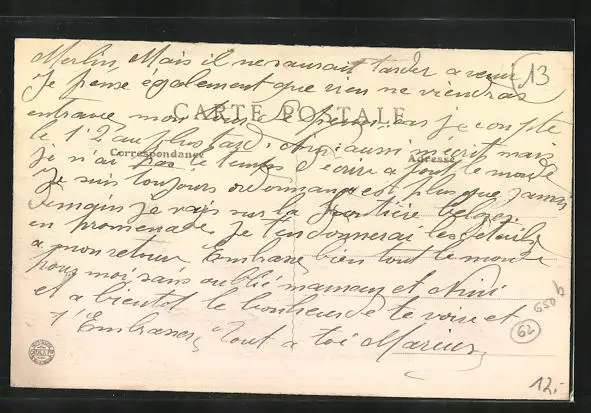 Merlin, Mais il ne saurait tarder a venir
13
Je pense également que rien ne viendras
CARTE POSTALE
entrave mon car je compte
le 12 au plus tard. aussi m'écrit mais
Correspondance
Adresse
Je n'ai pas le temps d'écrire a tout le monde
Je suis toujours ordonnance et plus que jamais
Demain je vais sur la frontière belge
en promenade Je t'en donnerai les détails
a mon retour Embrasse bien tout le monde
pour moi sans oublié maman et Nini
et a bientot le bonheur de te voir et
650 b
62
t'Embrasser Tout a toi Marius
12.-